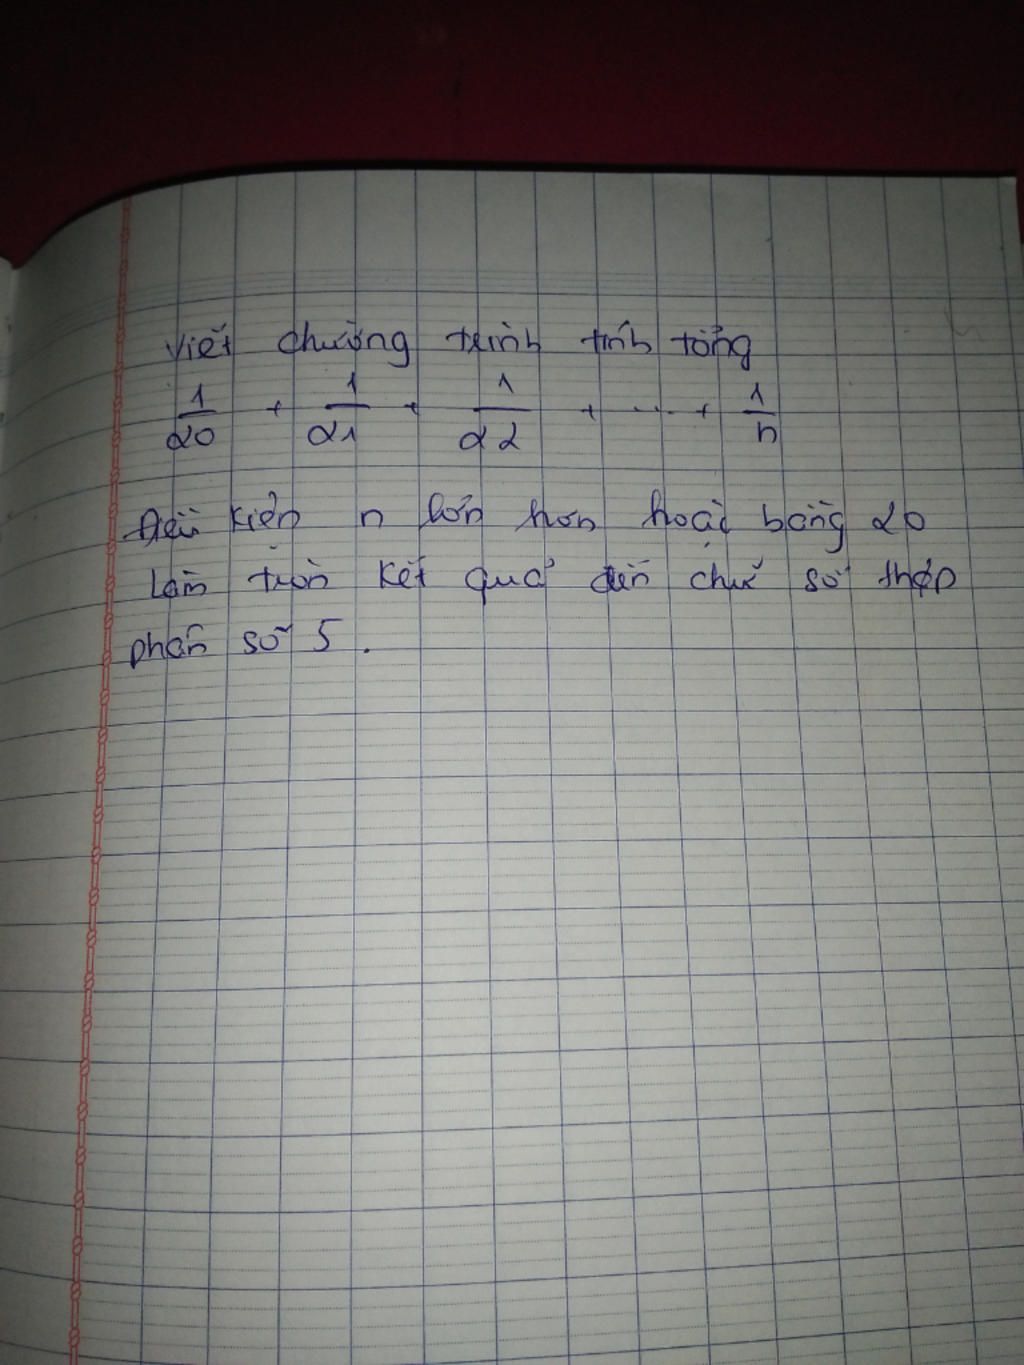 Viết chương trình tính tổng
1/20 + 1/21 + 1/22 + ... + 1/n
Điều kiện n lớn hơn hoặc bằng 20
Làm tròn kết quả đến chữ số thập
phân số 5.